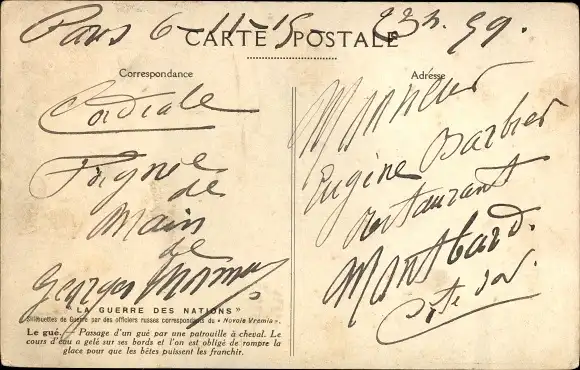 Paris 6-11-15- 23h. 59.
CARTE POSTALE
Correspondance
Cordiale
Poignée
de
Main
de
Georges
"LA GUERRE DES NATIONS"
Silhouettes de Guerre par des officiers russes correspondants du « Novoïe Vremia ».
Le gué. — Passage d'un gué par une patrouille à cheval. Le
cours d'eau a gelé sur ses bords et l'on est obligé de rompre la
glace pour que les bêtes puissent les franchir.
Adresse
Monsieur
Eugène Barbier
Restaurant
Montbard.
Côte d'or.